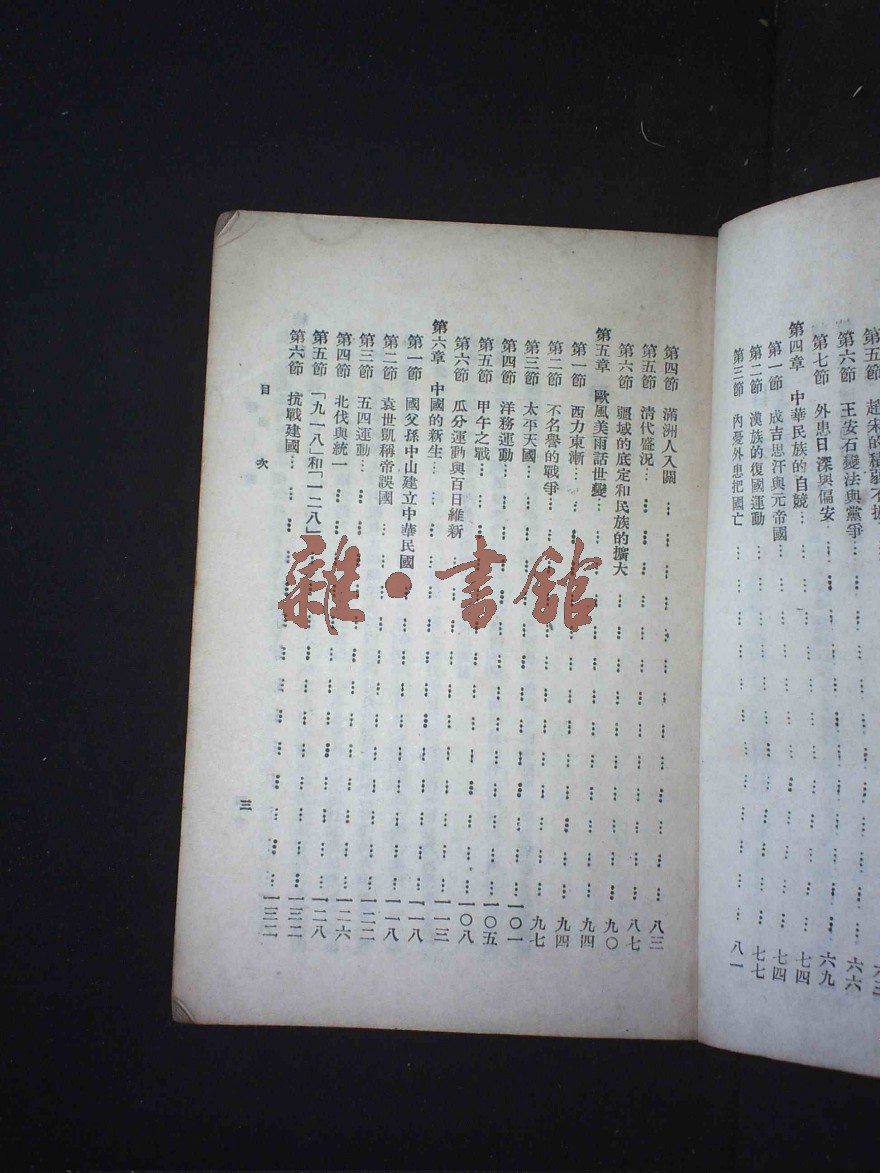 第五節 趙宋的積弱不振 … 六三
第六節 王安石變法與黨爭 … 六六
第七節 外患日深與偏安 … 六九
第四章 中華民族的自競 … 七四
第一節 成吉思汗與元帝國 … 七四
第二節 漢族的復國運動 … 七七
第三節 內憂外患把國亡 … 八一
第四節 滿洲人入關 … 八三
第五節 清代盛況 … 八七
第六節 疆域的底定和民族的擴大 … 九〇
第五章 歐風美雨話世變 … 九四
第一節 西力東漸 … 九四
第二節 不名譽的戰爭 … 九七
第三節 太平天國 … 一〇一
第四節 洋務運動 … 一〇五
第五節 甲午之戰 … 一〇八
第六節 瓜分運動與百日維新 … 一一三
第六章 中國的新生 … 一一八
第一節 國父孫中山建立中華民國 … 一一八
第二節 袁世凱稱帝誤國 … 一二二
第三節 五四運動 … 一二六
第四節 北伐與統一 … 一二八
第五節 「九一八」和「一二八」 … 一三二
第六節 抗戰建國 … 一三二
目次
三
雜·書館